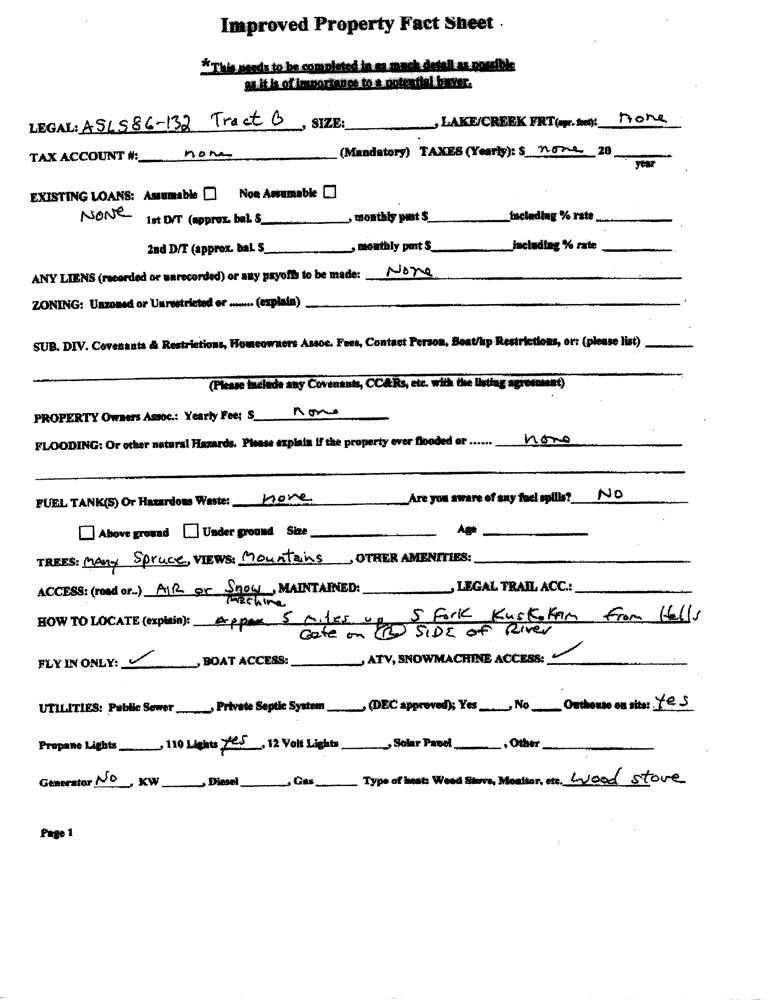 Improved Property Fact Sheet
*This needs to be completed in as much detail as possible
as it is of importance to a potential buyer.
LEGAL: ASLS86-132 Tract B, SIZE:__________, LAKE/CREEK FRT(apr. feet): none
TAX ACCOUNT #: none (Mandatory) TAXES (Yearly): $ none 20 ______
year
EXISTING LOANS: Assumable ☐ Non Assumable ☐
NONE 1st D/T (approx. bal. $__________, monthly pmt $__________including % rate ________
2nd D/T (approx. bal. $__________, monthly pmt $__________including % rate ________
ANY LIENS (recorded or unrecorded) or any payoffs to be made: None
ZONING: Unzoned or Unrestricted or ........ (explain) __________
SUB. DIV. Covenants & Restrictions, Homeowners Assoc. Fees, Contact Person, Boat/hp Restrictions, or: (please list) ______
(Please include any Covenants, CC&Rs, etc. with the listing agreement)
PROPERTY Owners Assoc.: Yearly Fee: $ none
FLOODING: Or other natural Hazards. Please explain if the property ever flooded or ...... none
FUEL TANK(S) Or Hazardous Waste: none Are you aware of any fuel spills? NO
☐ Above ground ☐ Under ground Size __________ Age __________
TREES: Many Spruce, VIEWS: Mountains, OTHER AMENITIES: __________
ACCESS: (road or..) AIR or Snow, MAINTAINED: __________, LEGAL TRAIL ACC.: __________
Machine
HOW TO LOCATE (explain): Appox 5 miles up S Fork Kuskokam from Hells
Gate on (R) SIDE of River
FLY IN ONLY: ✓, BOAT ACCESS: __________, ATV, SNOWMACHINE ACCESS: ✓
UTILITIES: Public Sewer _____, Private Septic System _____, (DEC approved); Yes _____, No _____ Outhouse on site: Yes
Propane Lights ______, 110 Lights yes, 12 Volt Lights ______, Solar Panel ______, Other __________
Generator No, KW ______, Diesel ______, Gas ______ Type of heat: Wood Stove, Monitor, etc. Wood stove
Page 1